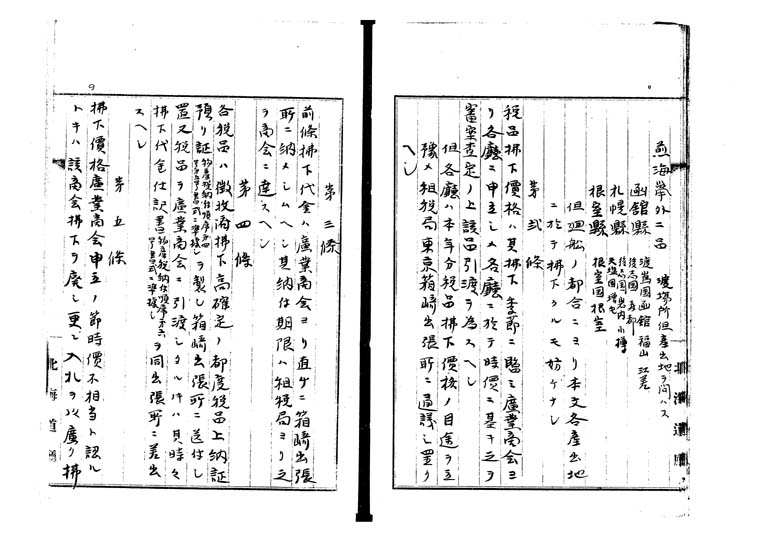 煎海鼠外二品 渡場所但産出地ヲ問ハス
函館縣 渡島国函館 福山 江差
後志国 寿都
札幌縣 後志国岩内 小樽
天塩国増毛
根室縣 根室国根室
但廻船ノ都合ニヨリ本文各産出地
ニ於テ拂下クルモ妨ケナシ
第弐條
税品拂下價格ハ其拂下季節ニ臨ミ廣業商会ヨ
リ各廳ニ申立シメ各廳ニ於テ時價ニ基キ之ヲ
審案査定ノ上該品引渡ヲ為スヘシ
但各廳ハ本年分税品拂下價格ノ目途ヲ立
豫メ租税局東京箱崎出張所ニ通議シ置クヘシ
第三條
前條拂下代金ハ廣業商会ヨリ直ケニ箱崎出張
所ニ納メシムヘシ其納付期限ハ租税局ヨリ之
ヲ商会ニ達スヘシ
第四條
各税品ハ徴收済拂下高確定ノ都度税品上納証
預リ証 ヲ製シ箱崎出張所ニ送付シ
置又税品ヲ廣業商会ニ引渡シタルトキハ其時々
拂下代金仕訳書 ヲ同出張所ニ差出
スヘシ
第五條
拂下價格廣業商会申立ノ節時價不相当ト認ル
トキハ該商会拂下ヲ廃シ更ニ入札ヲ以廣ク拂
北海道廳